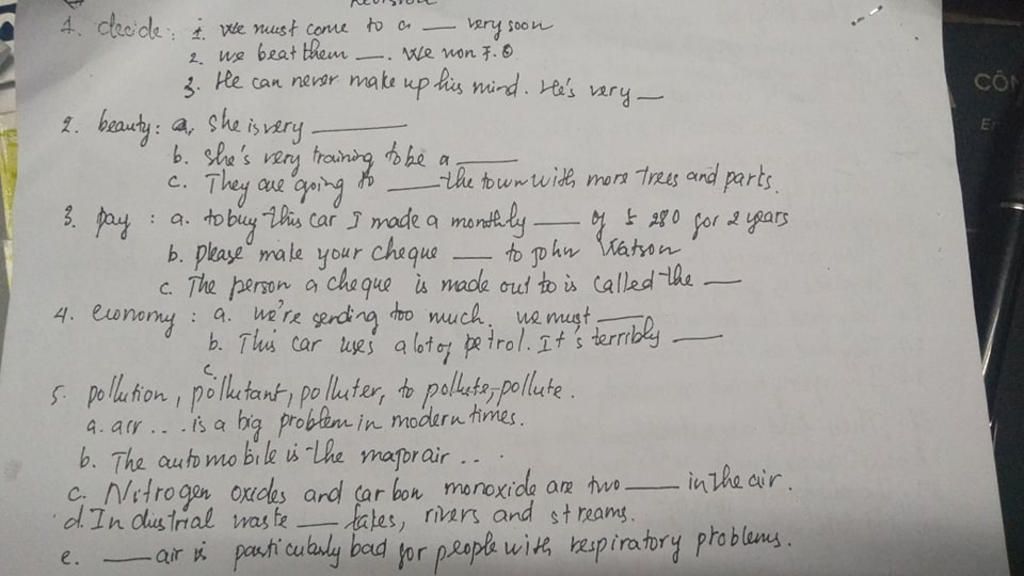 Revision
1. decide: 1. we must come to a ___ very soon
2. we beat them ___. We won 7.0
3. He can never make up his mind. He's very ___
2. beauty: a, she is very ___
b. she's very training to be a ___
c. They are going to ___ the town with more trees and parts.
3. pay : a. to buy this car I made a monthly ___ of £ 280 for 2 years
b. please make your cheque ___ to John Watson
c. The person a cheque is made out to is called the ___
4. economy : a. we're sending too much. we must ___
b. This car uses a lot of petrol. It's terribly ___
c.
5. pollution, pollutant, polluter, to pollute, pollute.
a. arr ... is a big problem in modern times.
b. The automobile is the major air ...
c. Nitrogen oxides and carbon monoxide are two ___ in the air.
d. Industrial waste ___ lakes, rivers and streams.
e. ___ air is particularly bad for people with respiratory problems.
CÔN